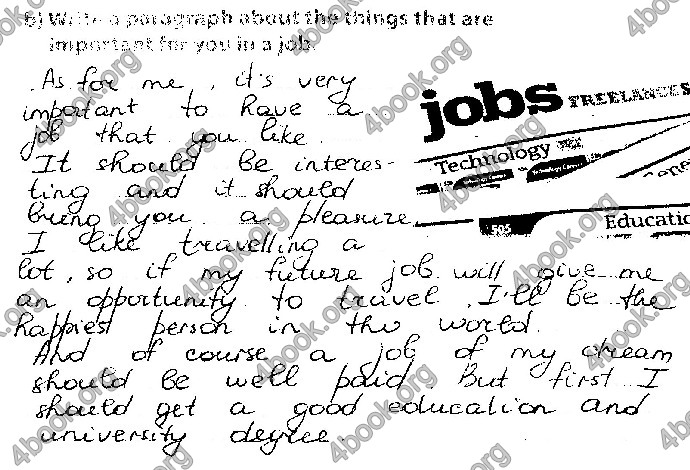 b) Write a paragraph about the things that are
important for you in a job.
As for me, it's very
important to have a
job that you like.
It should be interes-
ting and it should
bring you a pleasure.
I like travelling a
lot, so if my future job will give me
an opportunity to travel, I'll be the
happiest person in the world.
And of course a job of my dream
should be well paid. But first I
should get a good education and
university degree.
jobs FREELANCES
Technology
505
Educatio
4book.org